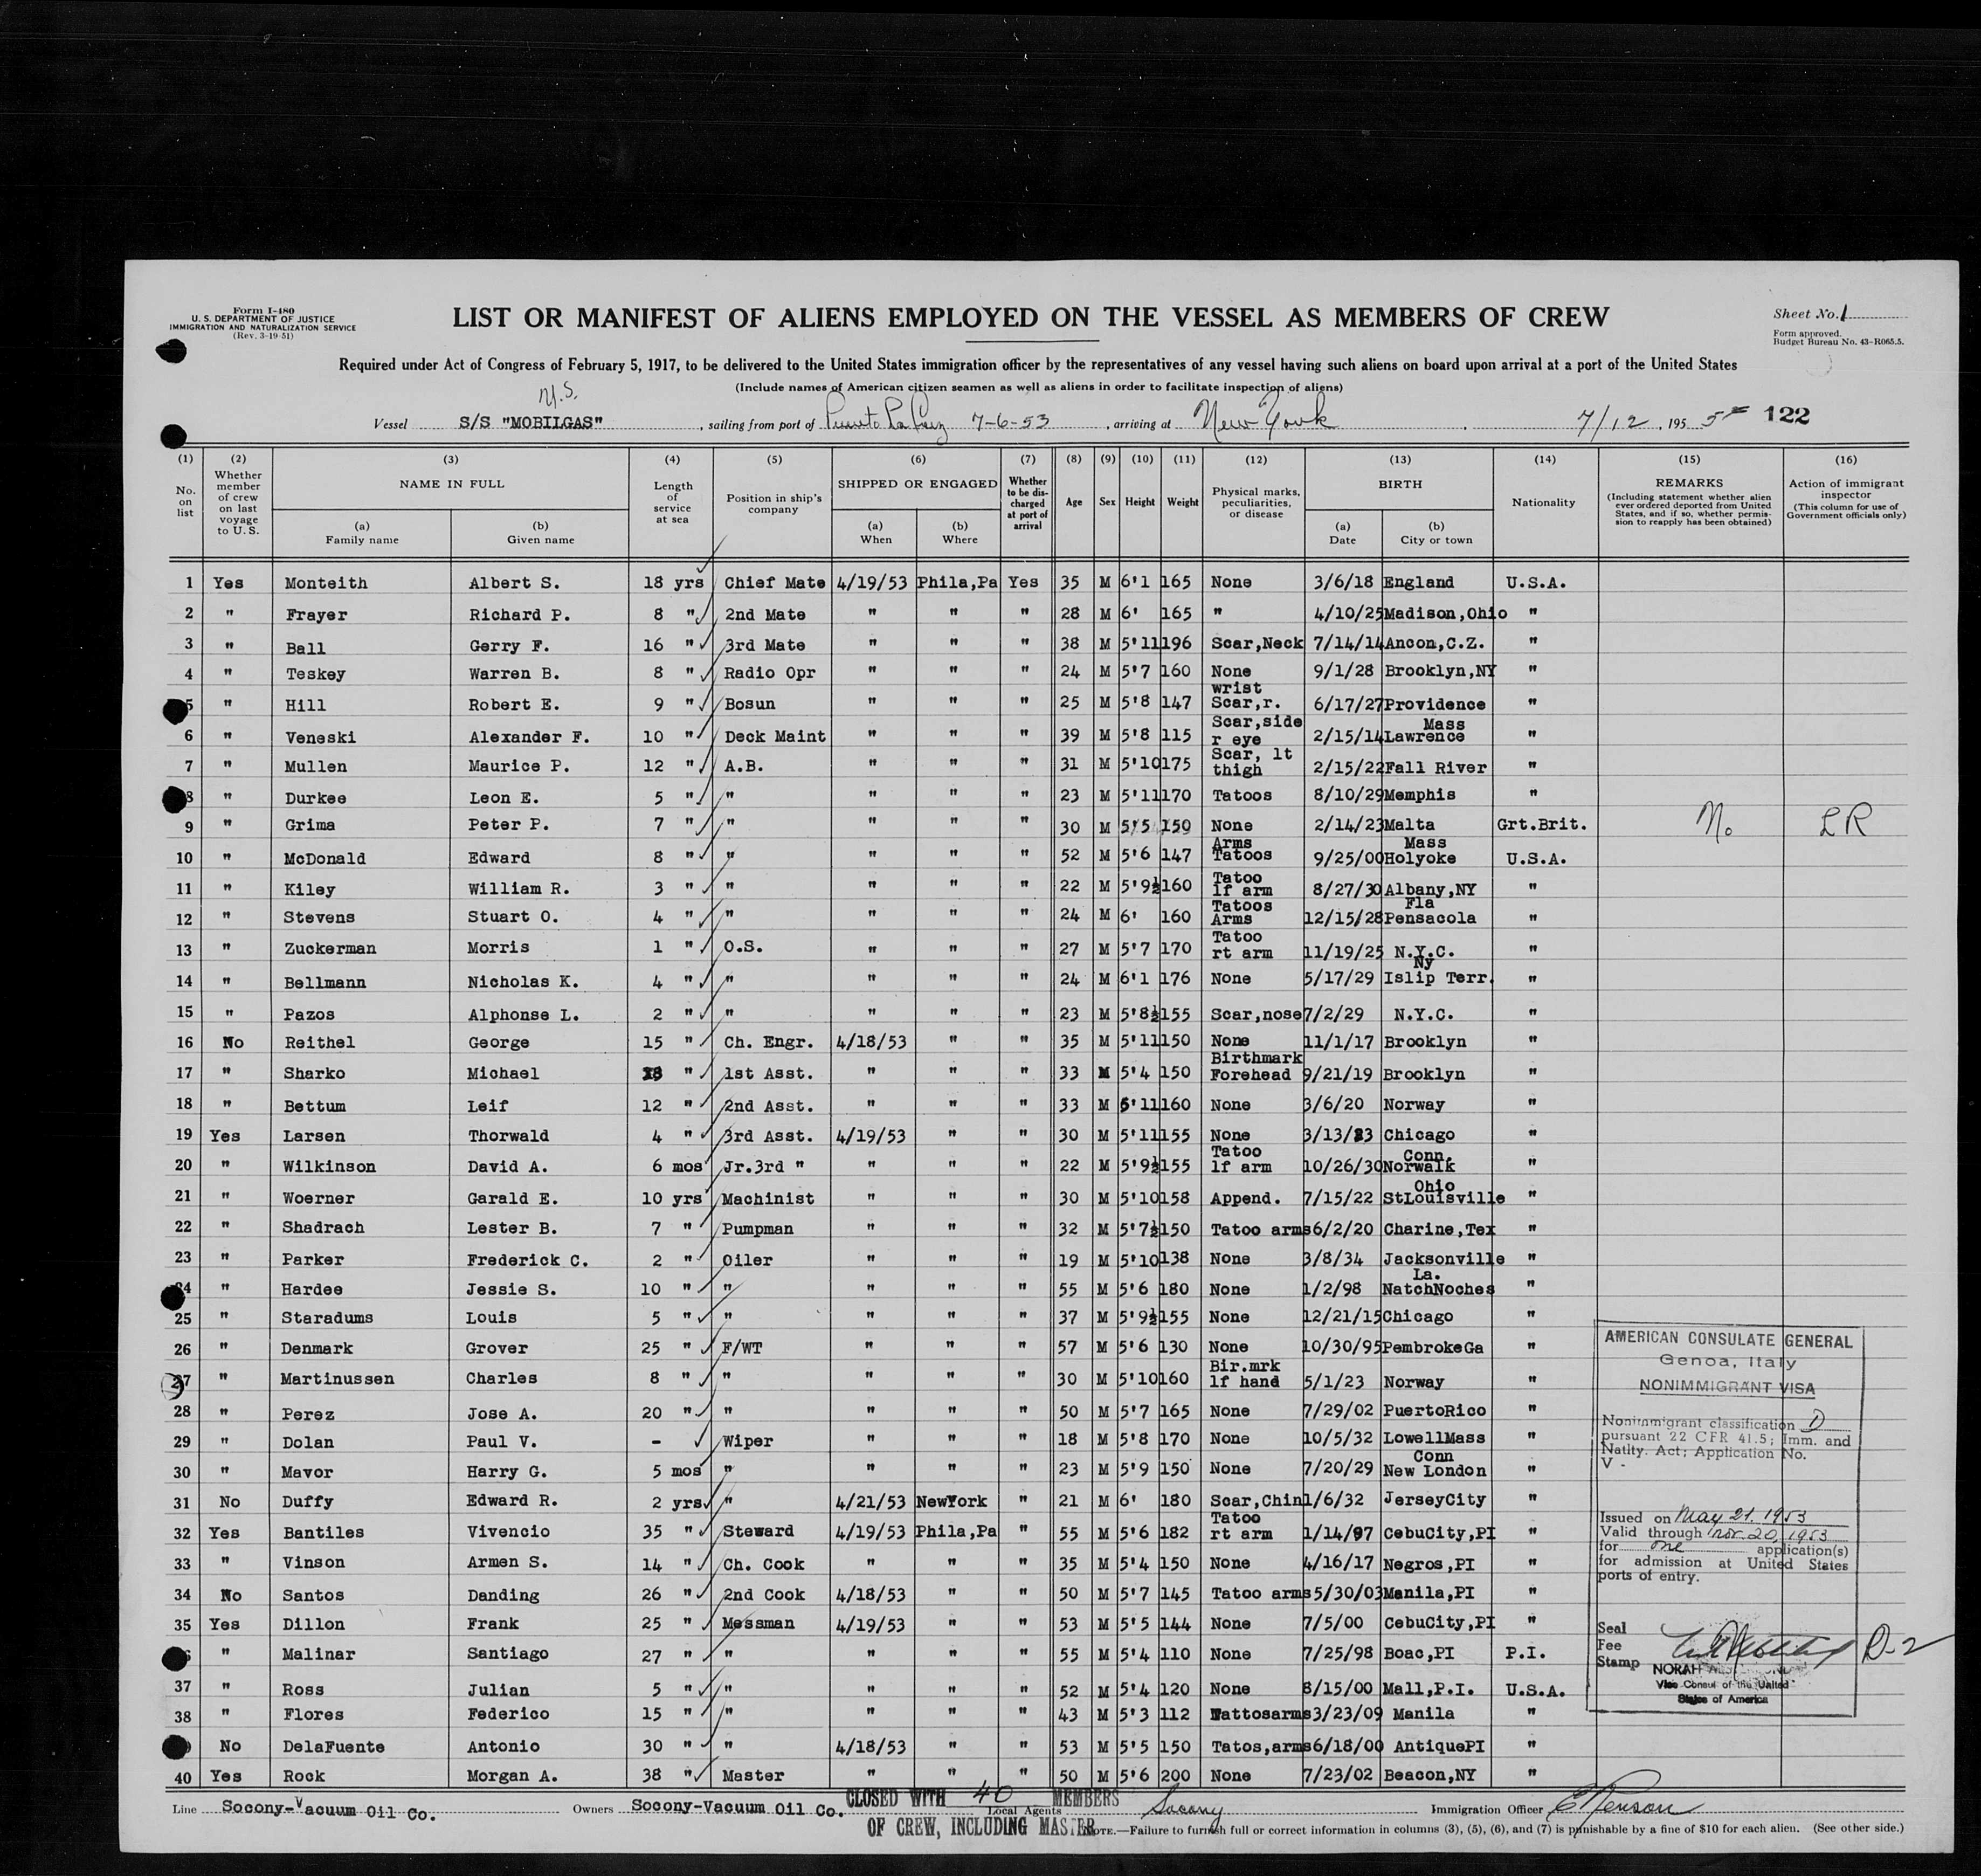 Form I-480
U. S. DEPARTMENT OF JUSTICE
IMMIGRATION AND NATURALIZATION SERVICE
(Rev. 3-19-51)
LIST OR MANIFEST OF ALIENS EMPLOYED ON THE VESSEL AS MEMBERS OF CREW
Sheet No. 1
Form approved.
Budget Bureau No. 43-R065.5.
Required under Act of Congress of February 5, 1917, to be delivered to the United States immigration officer by the representatives of any vessel having such aliens on board upon arrival at a port of the United States
(Include names of American citizen seamen as well as aliens in order to facilitate inspection of aliens)
U.S.
Vessel S/S "MOBILGAS" , sailing from port of Puerto La Cruz 7-6-53 , arriving at New York , 7/12 , 195 122
(1) No. on list (2) Whether member of crew on last voyage to U.S. (3) NAME IN FULL (a) Family name (b) Given name (4) Length of service at sea (5) Position in ship's company (6) SHIPPED OR ENGAGED (a) When (b) Where (7) Whether to be discharged at port of arrival (8) Age (9) Sex (10) Height (11) Weight (12) Physical marks, peculiarities, or disease (13) BIRTH (a) Date (b) City or town (14) Nationality (15) REMARKS (Including statement whether alien ever ordered deported from United States, and if so, whether permission to reapply has been obtained) (16) Action of immigrant inspector (This column for use of Government officials only)
1 Yes Monteith Albert S. 18 yrs Chief Mate 4/19/53 Phila,Pa Yes 35 M 6'1 165 None 3/6/18 England U.S.A.
2 " Frayer Richard P. 8 " 2nd Mate " " " 28 M 6' 165 " 4/10/25 Madison,Ohio "
3 " Ball Gerry F. 16 " 3rd Mate " " " 38 M 5'11 196 Scar,Neck 7/14/14 Ancon,C.Z. "
4 " Teskey Warren B. 8 " Radio Opr " " " 24 M 5'7 160 None 9/1/28 Brooklyn,NY "
5 " Hill Robert E. 9 " Bosun " " " 25 M 5'8 147 wrist Scar,r. 6/17/27 Providence "
6 " Veneski Alexander F. 10 " Deck Maint " " " 39 M 5'8 115 Scar,side r eye 2/15/14 Mass Lawrence "
7 " Mullen Maurice P. 12 " A.B. " " " 31 M 5'10 175 Scar, lt thigh 2/15/22 Fall River "
8 " Durkee Leon E. 5 " " " " " 23 M 5'11 170 Tatoos 8/10/29 Memphis "
9 " Grima Peter P. 7 " " " " " 30 M 5'5 150 None 2/14/23 Malta Grt.Brit. No LR
10 " McDonald Edward 8 " " " " " 52 M 5'6 147 Arms Tatoos 9/25/00 Mass Holyoke U.S.A.
11 " Kiley William R. 3 " " " " " 22 M 5'9½ 160 Tatoo lf arm 8/27/30 Albany,NY "
12 " Stevens Stuart O. 4 " " " " " 24 M 6' 160 Tatoos Arms 12/15/28 Fla Pensacola "
13 " Zuckerman Morris 1 " O.S. " " " 27 M 5'7 170 Tatoo rt arm 11/19/25 N.Y.C. "
14 " Bellmann Nicholas K. 4 " " " " " 24 M 6'1 176 None 5/17/29 Ny Islip Terr. "
15 " Pazos Alphonse L. 2 " " " " " 23 M 5'8½ 155 Scar,nose 7/2/29 N.Y.C. "
16 No Reithel George 15 " Ch. Engr. 4/18/53 " " 35 M 5'11 150 None 11/1/17 Brooklyn "
17 " Sharko Michael " 1st Asst. " " " 33 M 5'4 150 Birthmark Forehead 9/21/19 Brooklyn "
18 " Bettum Leif 12 " 2nd Asst. " " " 33 M 5'11 160 None 3/6/20 Norway "
19 Yes Larsen Thorwald 4 " 3rd Asst. 4/19/53 " " 30 M 5'11 155 None 3/13/23 Chicago "
20 " Wilkinson David A. 6 mos Jr.3rd " " " " 22 M 5'9½ 155 Tatoo lf arm 10/26/30 Conn. Norwalk "
21 " Woerner Garald E. 10 yrs Machinist " " " 30 M 5'10 158 Append. 7/15/22 Ohio StLouisville "
22 " Shadrach Lester B. 7 " Pumpman " " " 32 M 5'7½ 150 Tatoo arms 6/2/20 Charine,Tex "
23 " Parker Frederick C. 2 " Oiler " " " 19 M 5'10 138 None 3/8/34 Jacksonville "
24 " Hardee Jessie S. 10 " " " " " 55 M 5'6 180 None 1/2/98 La. NatchNoches "
25 " Staradums Louis 5 " " " " " 37 M 5'9½ 155 None 12/21/15 Chicago "
26 " Denmark Grover 25 " F/WT " " " 57 M 5'6 130 None 10/30/95 PembrokeGa "
27 " Martinussen Charles 8 " " " " " 30 M 5'10 160 Bir.mrk lf hand 5/1/23 Norway "
28 " Perez Jose A. 20 " " " " " 50 M 5'7 165 None 7/29/02 PuertoRico "
29 " Dolan Paul V. - Wiper " " " 18 M 5'8 170 None 10/5/32 LowellMass "
30 " Mavor Harry G. 5 mos " " " " 23 M 5'9 150 None 7/20/29 Conn New London "
31 No Duffy Edward R. 2 yrs " 4/21/53 NewYork " 21 M 6' 180 Scar,Chin 1/6/32 JerseyCity "
32 Yes Bantiles Vivencio 35 " Steward 4/19/53 Phila,Pa " 55 M 5'6 182 Tatoo rt arm 1/14/97 CebuCity,PI "
33 " Vinson Armen S. 14 " Ch. Cook " " " 35 M 5'4 150 None 4/16/17 Negros,PI "
34 No Santos Danding 26 " 2nd Cook 4/18/53 " " 50 M 5'7 145 Tatoo arms 5/30/03 Manila,PI "
35 Yes Dillon Frank 25 " Messman 4/19/53 " " 53 M 5'5 144 None 7/5/00 CebuCity,PI "
" Malinar Santiago 27 " " " " " 55 M 5'4 110 None 7/25/98 Boac,PI P.I.
37 " Ross Julian 5 " " " " " 52 M 5'4 120 None 8/15/00 Mall,P.I. U.S.A.
38 " Flores Federico 15 " " " " " 43 M 5'3 112 Tattosarms 3/23/09 Manila "
No DelaFuente Antonio 30 " " 4/18/53 " " 53 M 5'5 150 Tatos,arms 6/18/00 AntiquePI "
40 Yes Rock Morgan A. 38 " Master " " " 50 M 5'6 200 None 7/23/02 Beacon,NY "
AMERICAN CONSULATE GENERAL
Genoa, Italy
NONIMMIGRANT VISA
Nonimmigrant classification D
pursuant 22 CFR 41.5; Imm. and
Natlty. Act; Application No.
V -
Issued on May 21, 1953
Valid through Nov. 20, 1953
for one application(s)
for admission at United States
ports of entry.
Seal
Fee
Stamp
D-2
NORAH
Vice Consul of the United
States of America
CLOSED WITH 40 MEMBERS
OF CREW, INCLUDING MASTER
Line Socony-Vacuum Oil Co. Owners Socony-Vacuum Oil Co. Local Agents Socony Immigration Officer
NOTE.—Failure to furnish full or correct information in columns (3), (5), (6), and (7) is punishable by a fine of $10 for each alien. (See other side.)